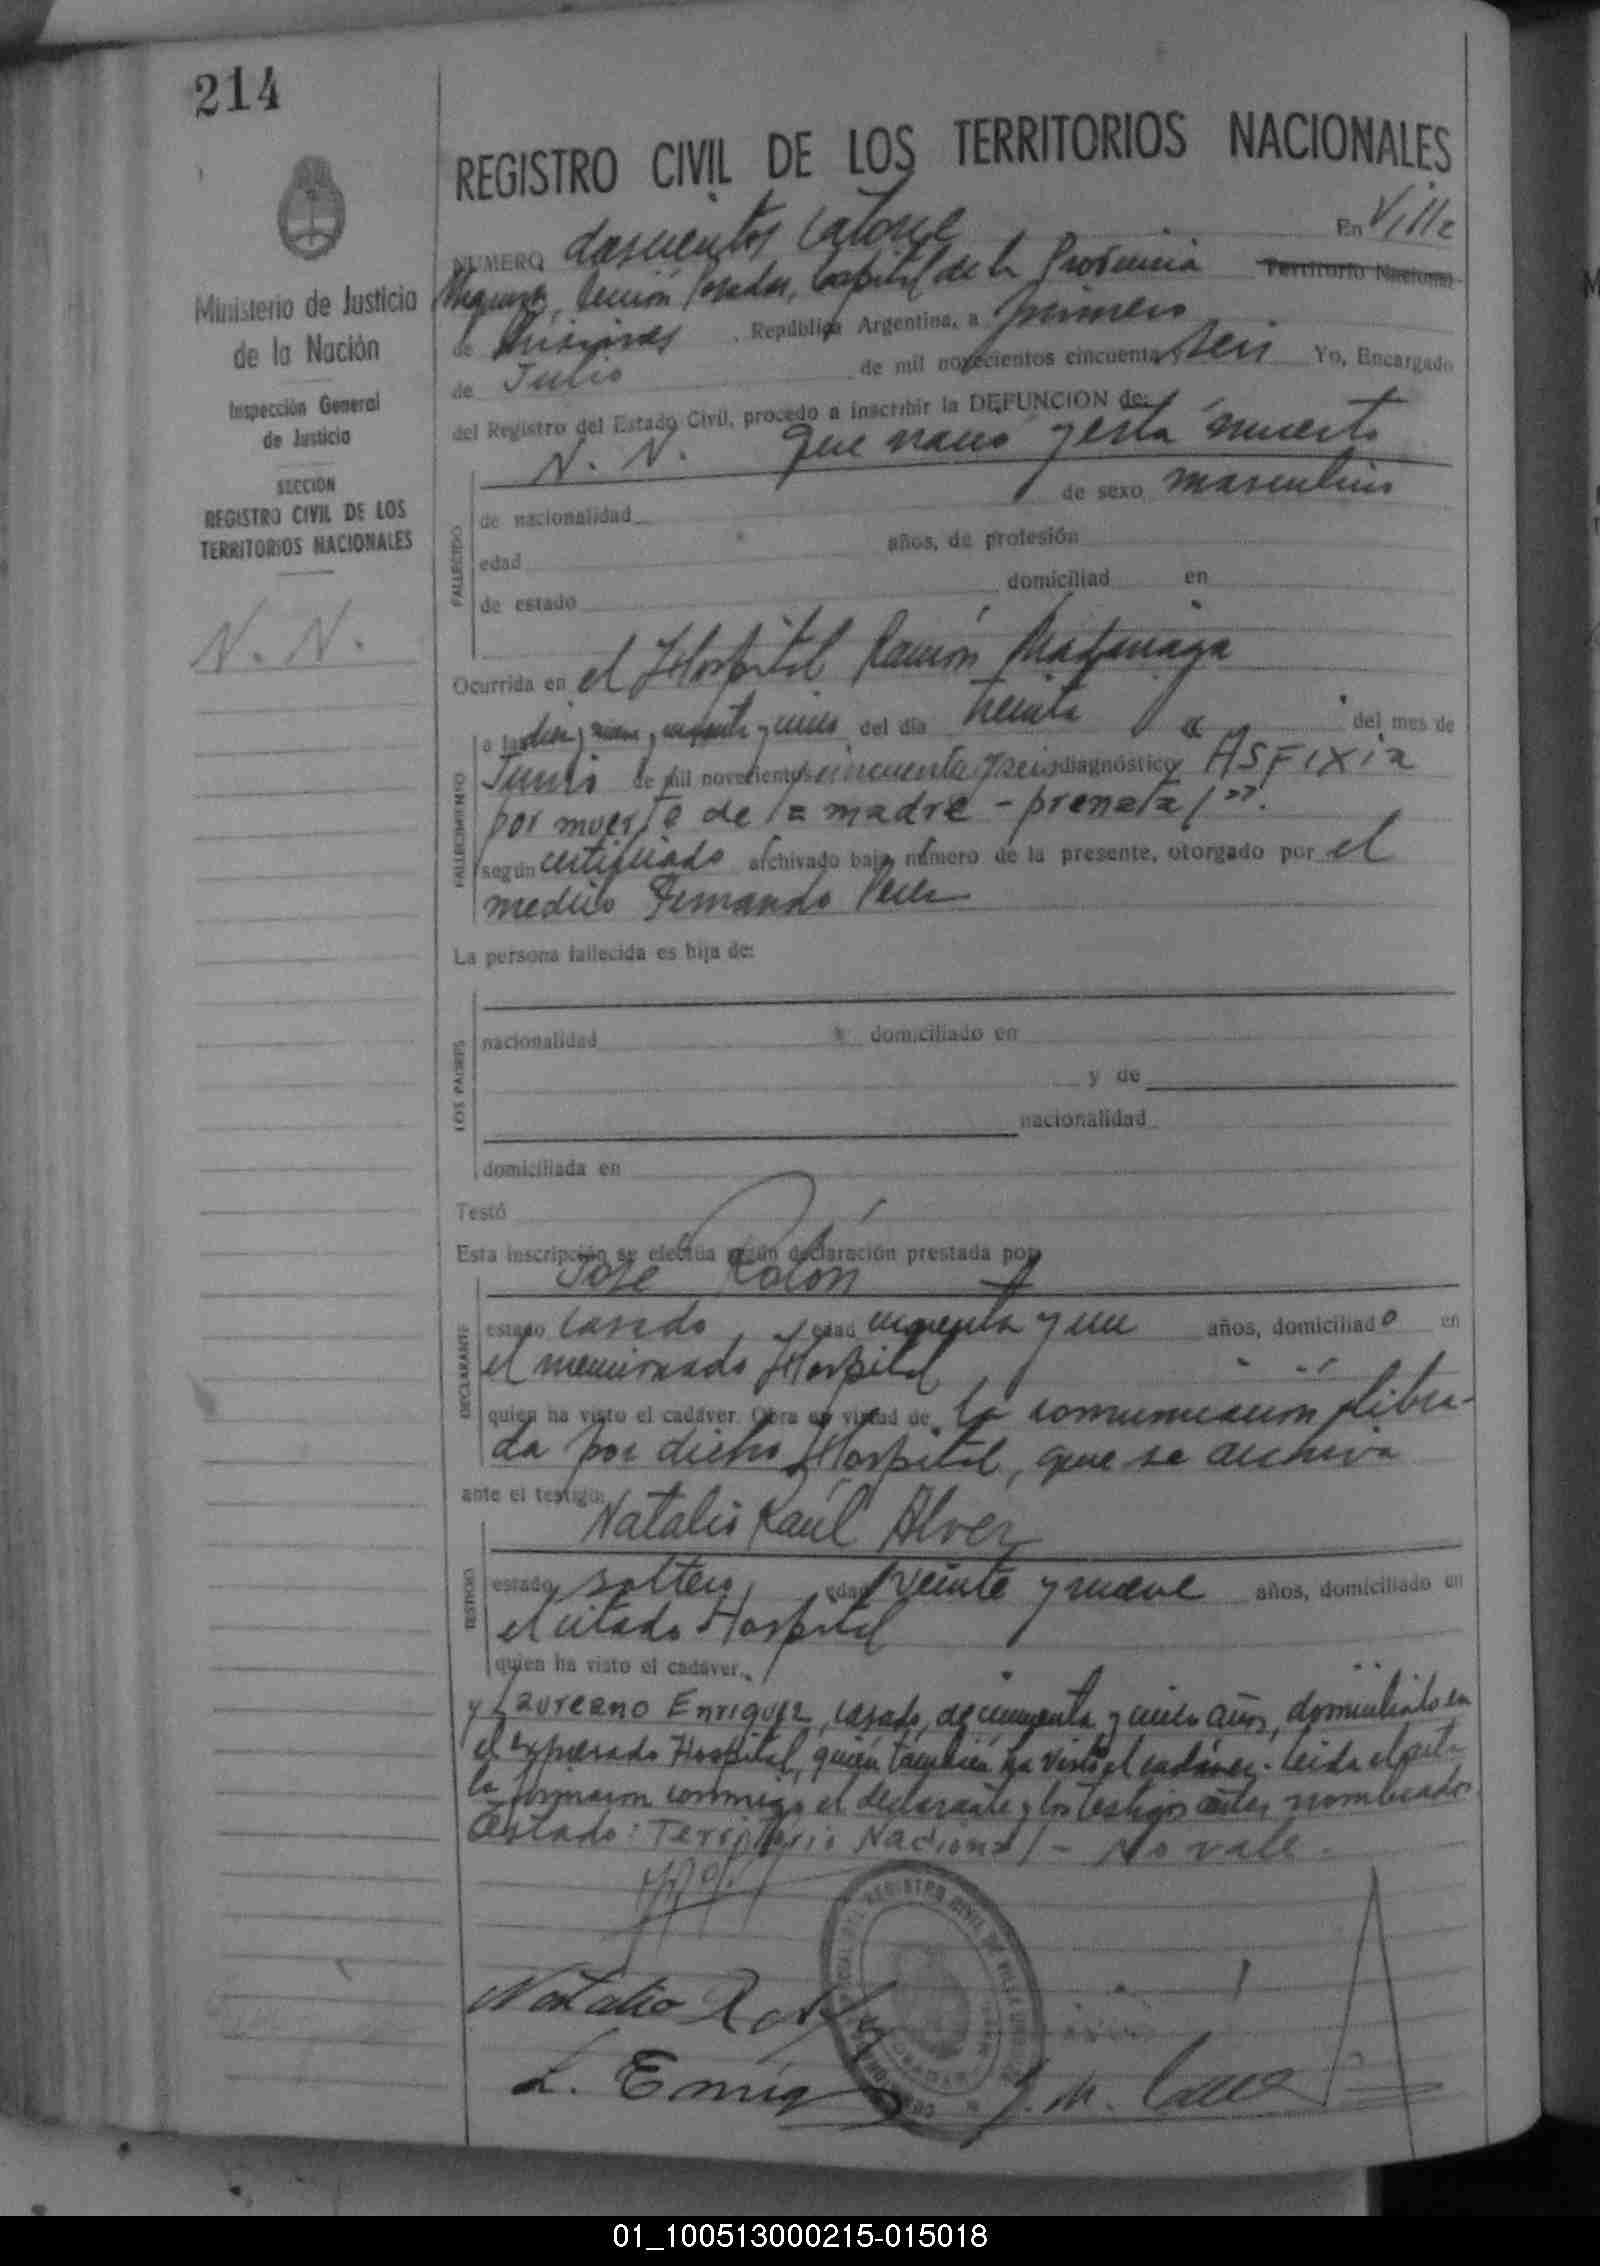 214
REGISTRO CIVIL DE LOS TERRITORIOS NACIONALES
Ministerio de Justicia
de la Nación
Inspección General
de Justicia
SECCION
REGISTRO CIVIL DE LOS
TERRITORIOS NACIONALES
N. N.
NUMERO doscientos catorce En Villa
Urquiza, Sección Posadas, Capital de la Provincia Territorio Nacional
de Misiones, República Argentina, a primero
de Julio de mil novecientos cincuenta y seis Yo, Encargado
del Registro del Estado Civil, procedo a inscribir la DEFUNCION de:
N. N. que nació y está muerto
FALLECIDO
de nacionalidad de sexo masculino
edad años, de profesión
de estado domiciliad en
Ocurrida en el Hospital Ramón Madariaga
FALLECIMIENTO
a las diez y nueve y cuarenta y cinco del día treinta del mes de
Junio de mil novecientos cincuenta y seis diagnóstico "ASFIXIA
por muerte de la madre - prenatal".
según certificado archivado bajo número de la presente, otorgado por el
médico Fernando Perez
La persona fallecida es hija de:
LOS PADRES
nacionalidad domiciliado en
y de
nacionalidad
domiciliada en
Testó
Esta inscripción se efectúa según declaración prestada por
José Rolón
DECLARANTE
estado casado, edad cuarenta y un años, domiciliado en
el mencionado Hospital
quien ha visto el cadáver. Obra en virtud de la comunicación libra-
da por dicho Hospital, que se archiva
ante el testigo:
Natalio Raúl Alvez
TESTIGO
estado soltero, edad veinte y nueve años, domiciliado en
el citado Hospital
quien ha visto el cadáver.
y Laureano Enriquez, casado, de cincuenta y cinco años, domiciliado en
el expresado Hospital, quien también ha visto el cadáver. Leída el acta
la firmaron conmigo el declarante y los testigos antes nombrados.
Testado: Territorio Nacional - No vale.
Natalio R. Alvez
L. Enriquez
01_100513000215-015018